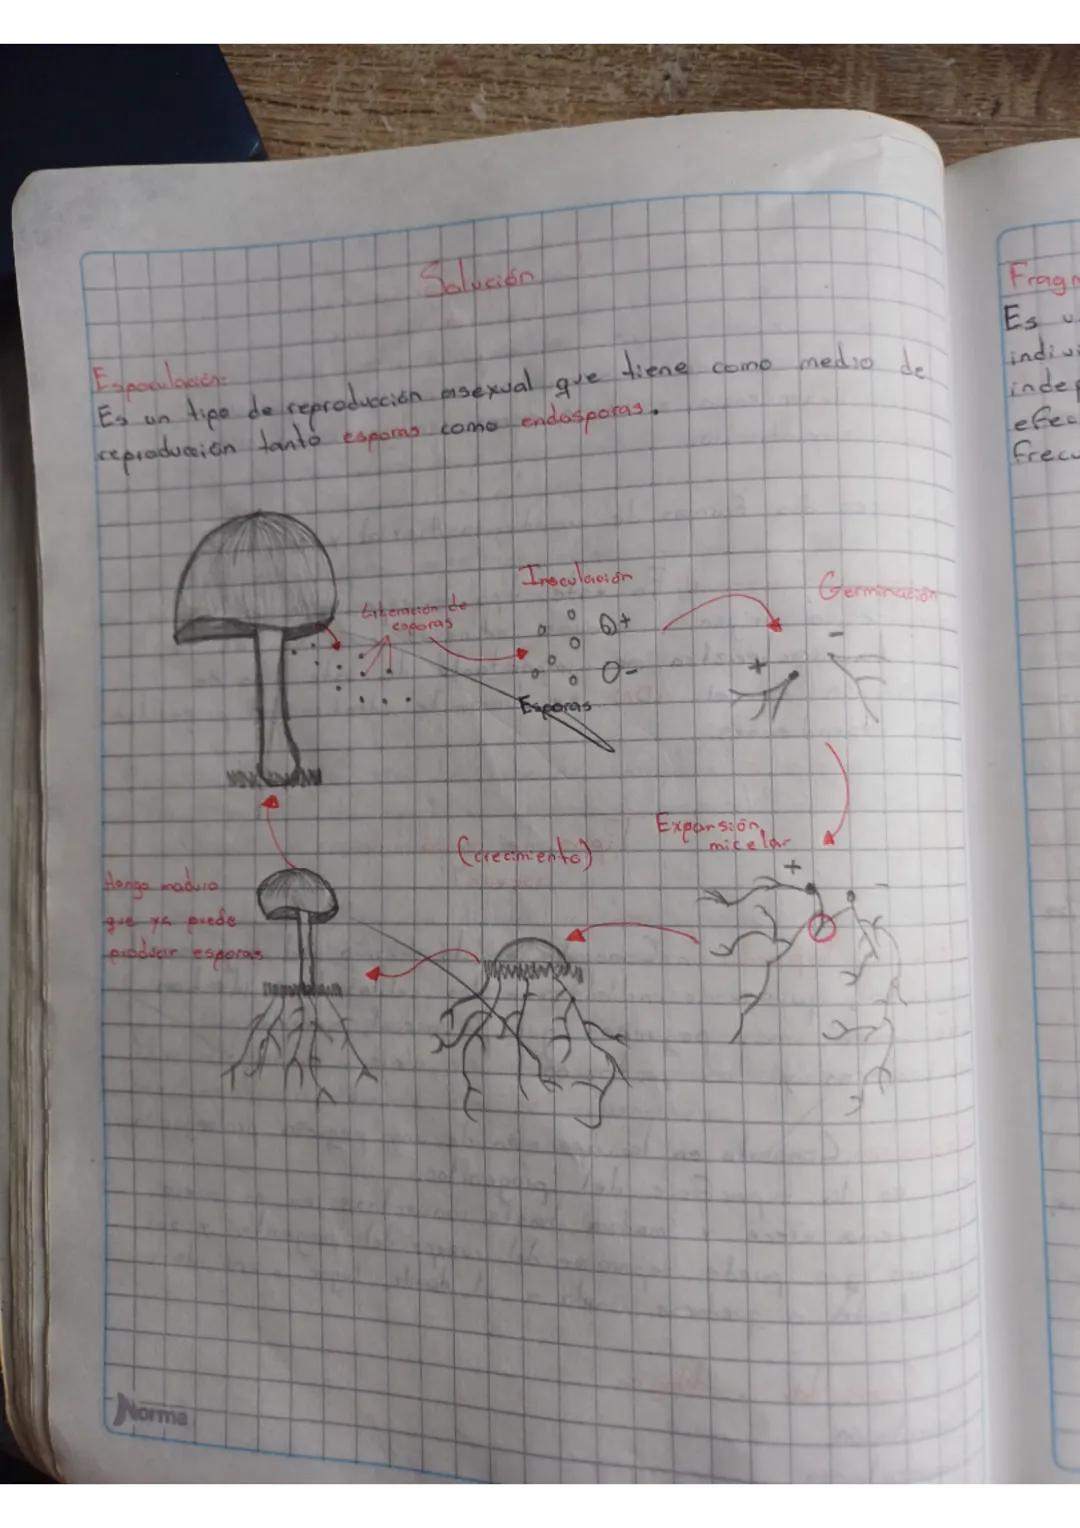 Solución
Esporulación:
Es un tipo de reproducción asexual que tiene como medio de
reproducción tanto esporas como endosporas.
Liberación de
esporas
Inoculación
+
-
Esporas
Germinación
+
-
Expansión
micelar
+
-
(crecimiento)
Hongo maduro
que ya puede
producir esporas
Norma
Frag
Es u
indivi
indep
efec
frecu